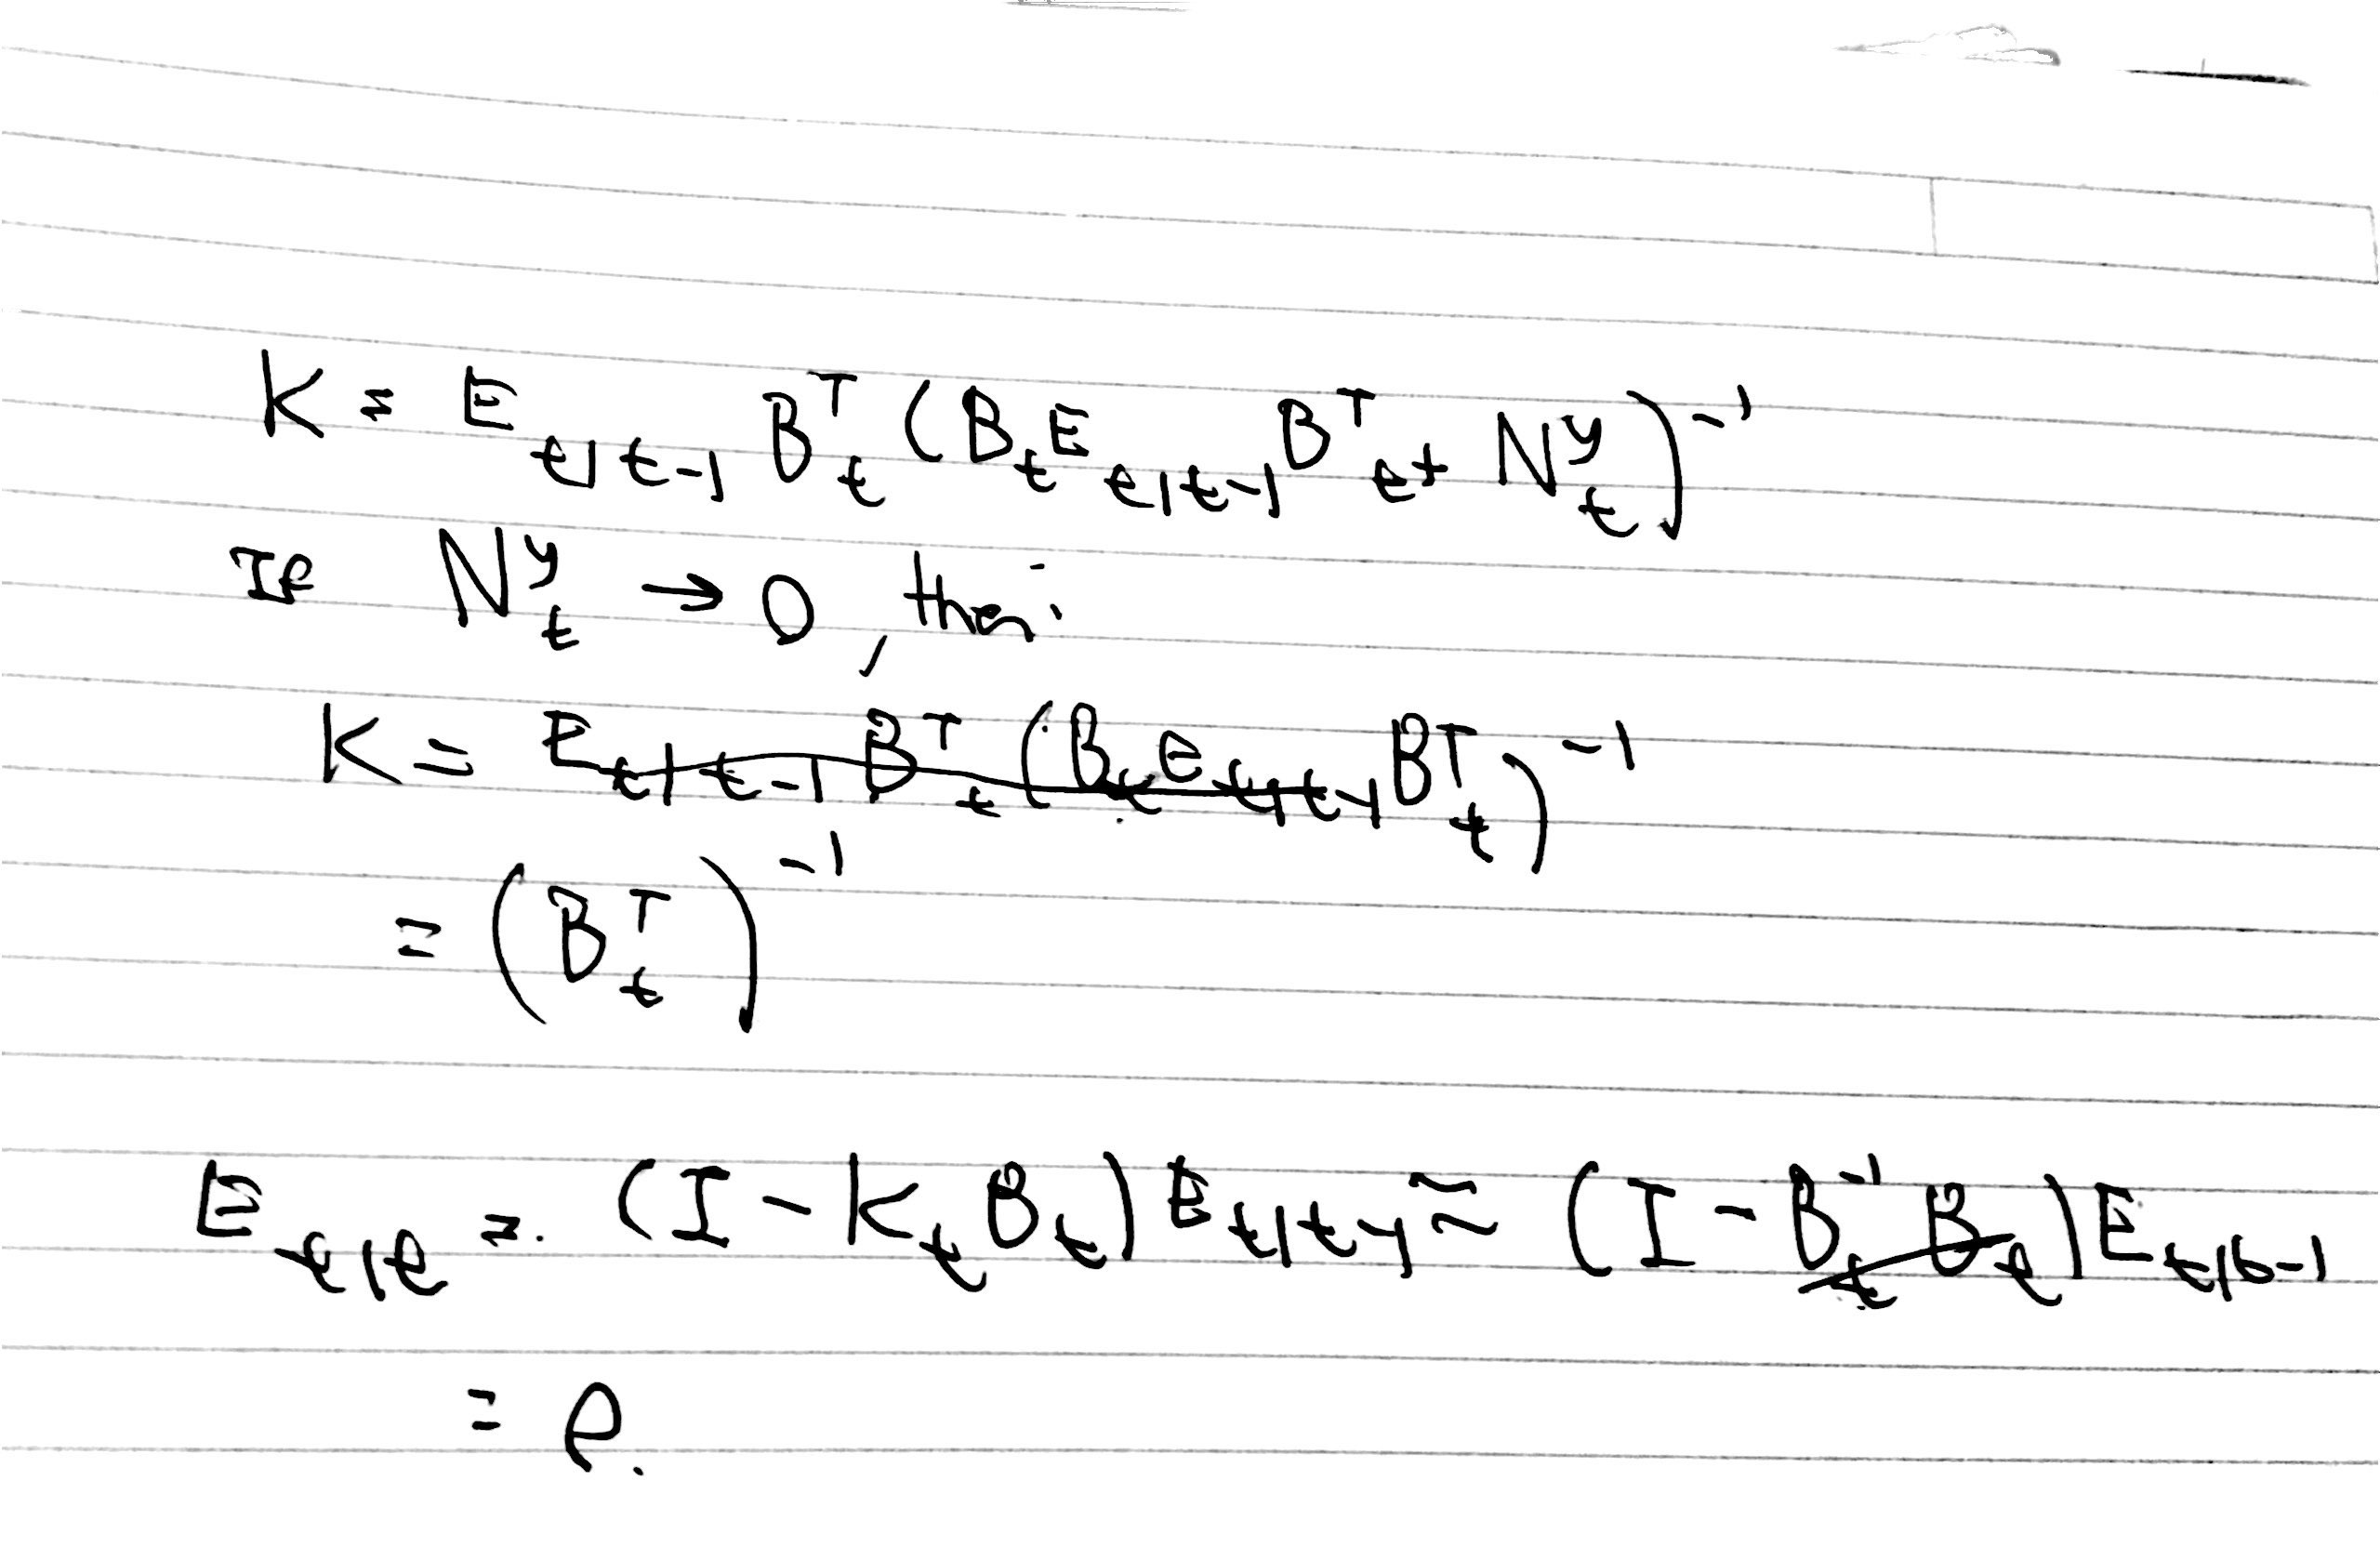 K = E_{t|t-1} B_t^T (B_t E_{t|t-1} B_t^T + N_t^y)^{-1}
If N_t^y → 0, then:
K = E_{t|t-1} B_t^T (B_t E_{t|t-1} B_t^T)^{-1}
= (B_t^T)^{-1}
E_{t|t} = (I - K_t B_t) E_{t|t-1} ≈ (I - B_t^{-1} B_t) E_{t|t-1}